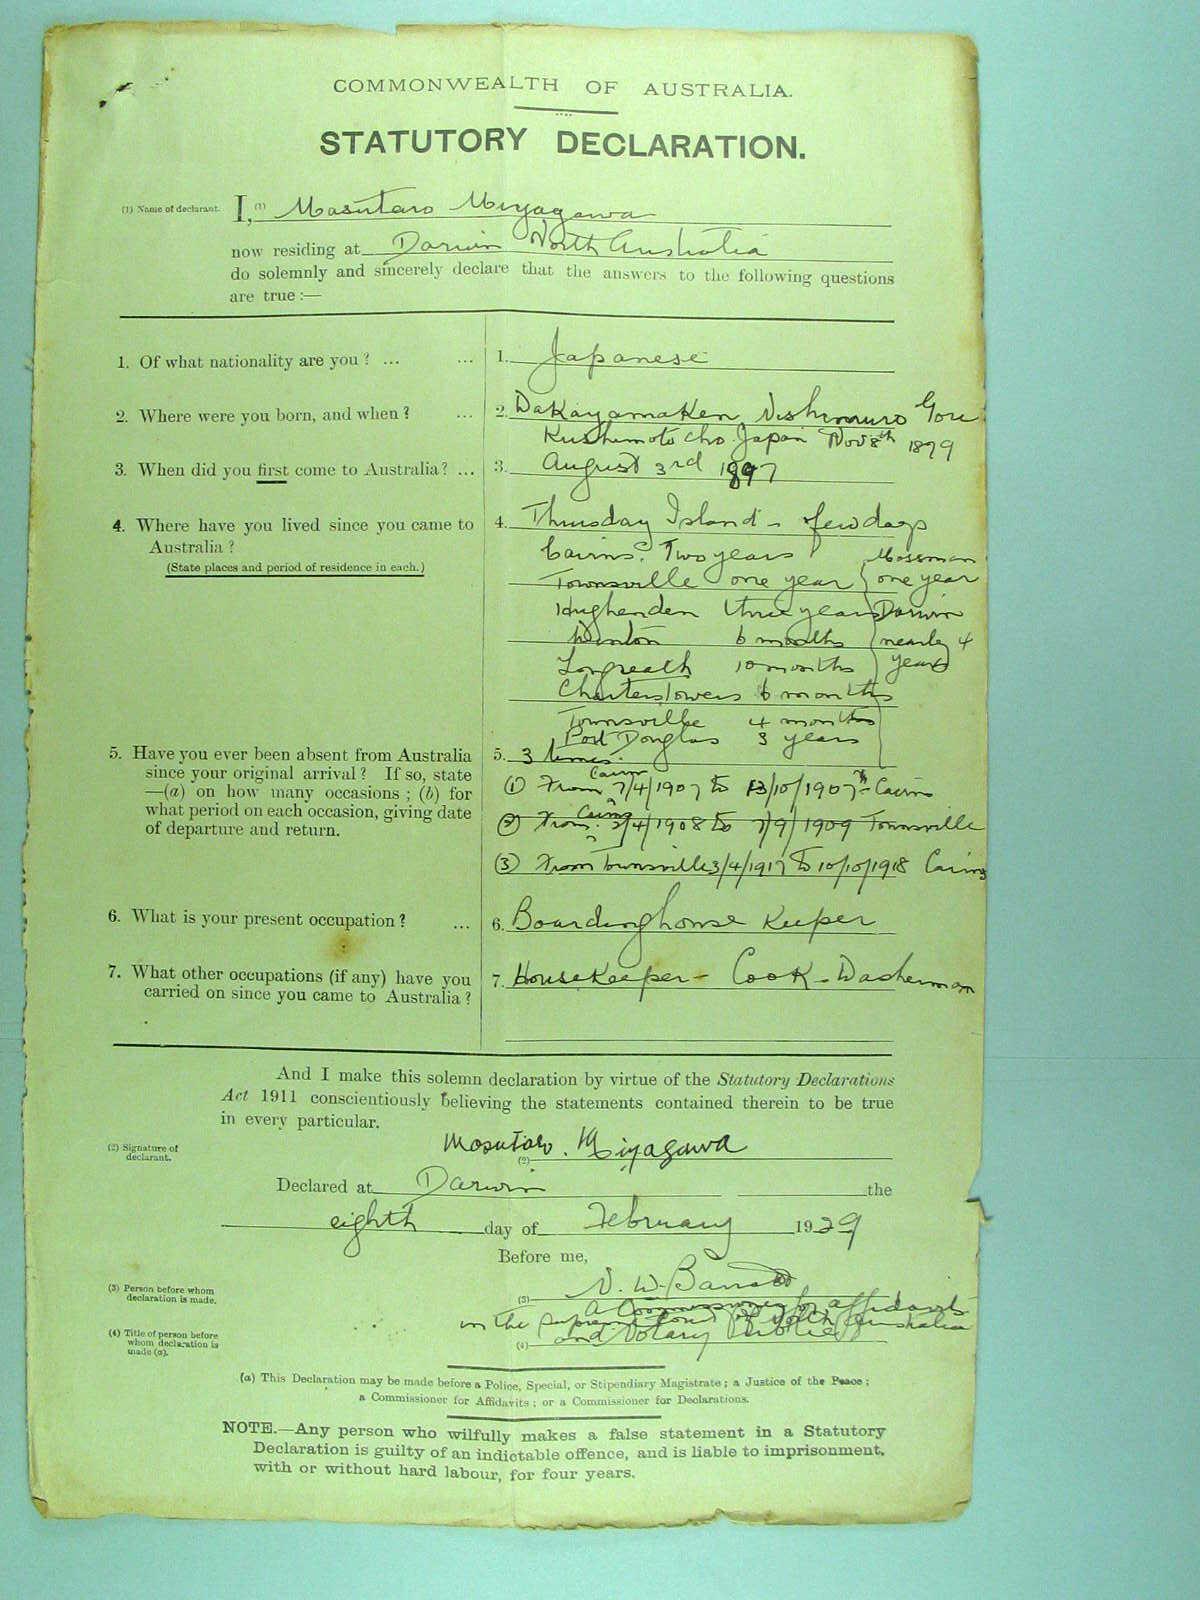 COMMONWEALTH OF AUSTRALIA.
STATUTORY DECLARATION.
(1) Name of declarant.
I, (1) Masutaro Miyagawa
now residing at Darwin North Australia
do solemnly and sincerely declare that the answers to the following questions
are true :—
1. Of what nationality are you ? ... ...
1. Japanese
2. Where were you born, and when ? ...
2. Wakayamaken Nishimuro Gori
Kushimoto cho Japan Nov 8th 1879
3. When did you first come to Australia? ...
3. August 3rd 1897
4. Where have you lived since you came to
Australia ?
(State places and period of residence in each.)
4. Thursday Island - few days
Cairns. Two years
Townsville one year
Hughenden three years
Winton 6 months
Longreath 10 months
Charters Towers 6 months
Townsville 4 months
Port Douglas 3 years
Mossman
one year
Darwin
nearly 4
years
5. Have you ever been absent from Australia
since your original arrival? If so, state
—(a) on how many occasions ; (b) for
what period on each occasion, giving date
of departure and return.
5. 3 times.
(1) From Cairns 7/4/1907 to 13/10/1907 - Cairns
(2) From Cairns /4/1908 to 7/9/1909 Townsville
(3) From Townsville 3/4/1917 to 10/10/1918 Cairns
6. What is your present occupation ? ...
6. Boardinghouse Keeper
7. What other occupations (if any) have you
carried on since you came to Australia ?
7. Housekeeper - Cook - Washerman
And I make this solemn declaration by virtue of the Statutory Declarations
Act 1911 conscientiously believing the statements contained therein to be true
in every particular.
(2) Signature of
declarant.
Masutaro. Miyagawa
(2)
Declared at Darwin the
eighth day of February 1929
Before me,
(3) Person before whom
declaration is made.
(3) N. W. Barratt
(4) Title of person before
whom declaration is
made (a).
A Commissioner for affidavits
in the Supreme Court of North Australia
(4) and Notary Public
(a) This Declaration may be made before a Police, Special, or Stipendiary Magistrate ; a Justice of the Peace ;
a Commissioner for Affidavits ; or a Commissioner for Declarations.
NOTE.—Any person who wilfully makes a false statement in a Statutory
Declaration is guilty of an indictable offence, and is liable to imprisonment,
with or without hard labour, for four years.